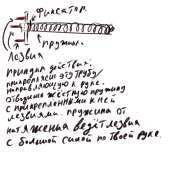 фиксатор.
пружина.
Лезвия
принцип действия:
прикрепляем эту трубу
направляющую к руке.
отводишь жёсткую пружину
с прикреплёнными к ней
лезвиями. пружина от
натяжения ведёт лезвия
с большой силой по твоей руке.